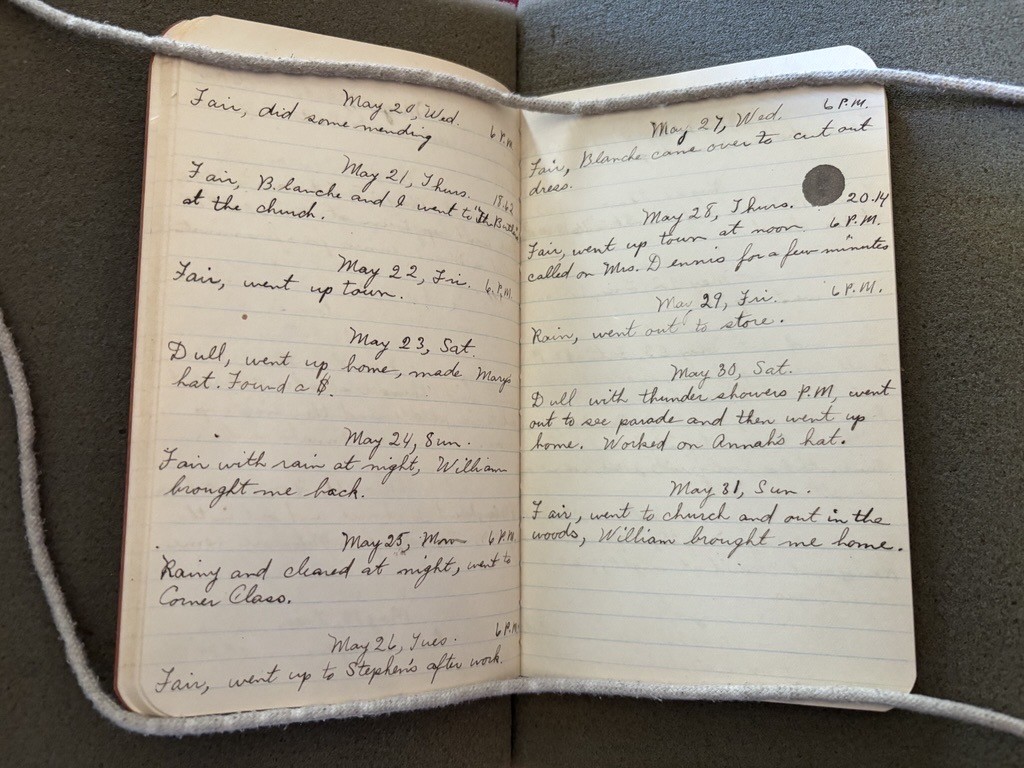 May 20, Wed. 6 P.M.
Fair, did some mending
May 21, Thurs. 18.62
Fair, Blanche and I went to "The
at the church.
May 22, Fri. 6 P.M.
Fair, went up town.
May 23, Sat.
Dull, went up home, made Mary's
hat. Found a $.
May 24, Sun.
Fair with rain at night, William
brought me back.
May 25, Mon 6 P.M.
Rainy and cleared at night, went to
Corner Class.
May 26, Tues. 6 P.M.
Fair, went up to Stephen's after work.
6 P.M.
May 27, Wed.
Fair, Blanche came over to cut out
dress.
May 28, Thurs. 20.14
Fair, went up town at noon 6 P.M.
called on Mrs. Dennis for a few minutes
May 29, Fri. 6 P.M.
Rain, went out to store.
May 30, Sat.
Dull with thunder showers P.M, went
out to see parade and then went up
home. Worked on Annah's hat.
May 31, Sun.
Fair, went to church and out in the
woods, William brought me home.